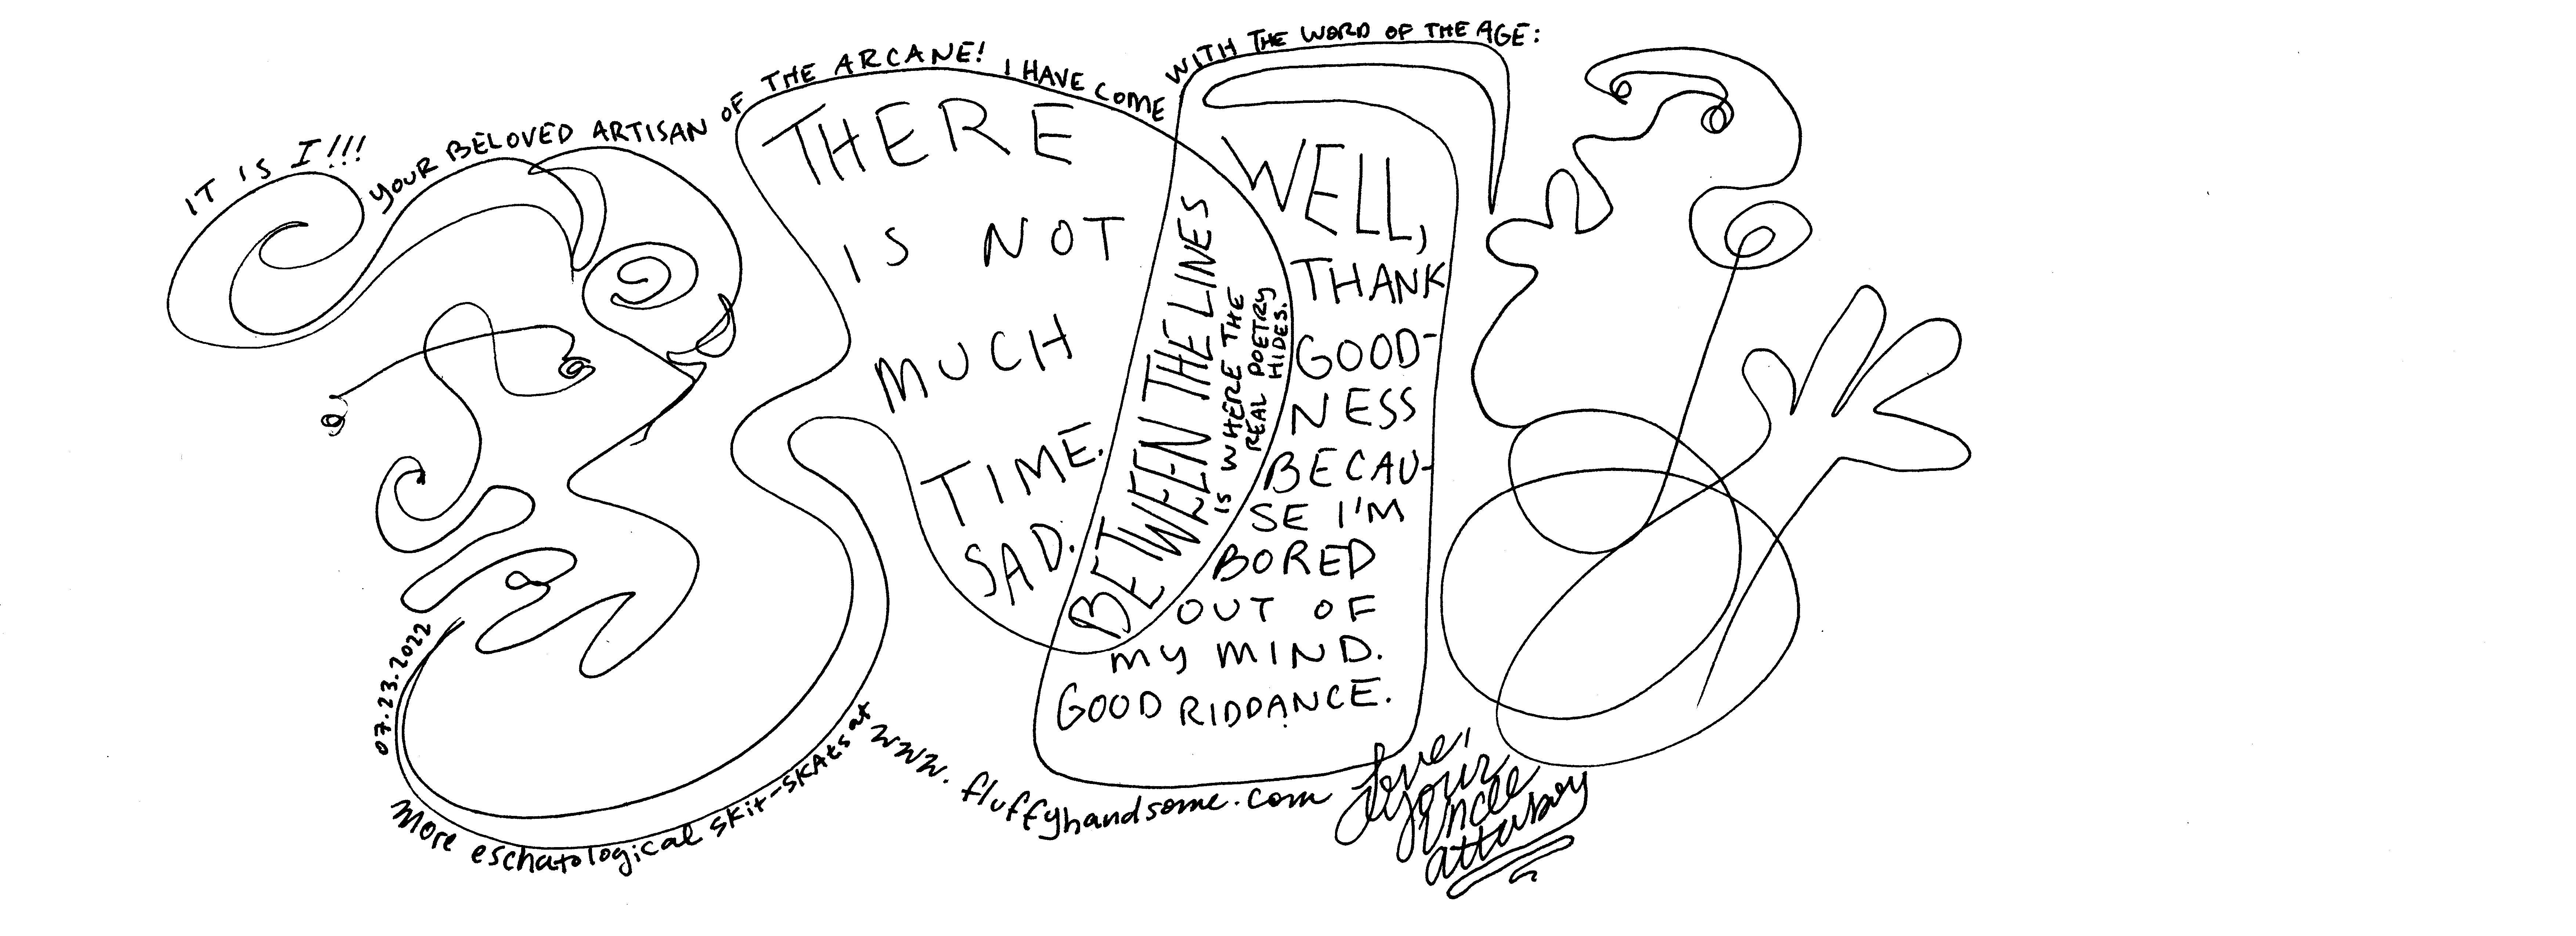 IT IS I!!!
YOUR BELOVED ARTISAN OF THE ARCANE! I HAVE COME WITH THE WORD OF THE AGE:
THERE
IS NOT
MUCH
TIME.
SAD.
BETWEEN THE LINES
IS WHERE THE
REAL POETRY
HIDES.
WELL,
THANK
GOOD-
NESS
BECAU-
SE I'M
BORED
OUT OF
MY MIND.
GOOD RIDDANCE.
07.23.2022
More eschatological skit-skats at www.fluffyhandsome.com
Love,
your
Uncle
attaboy